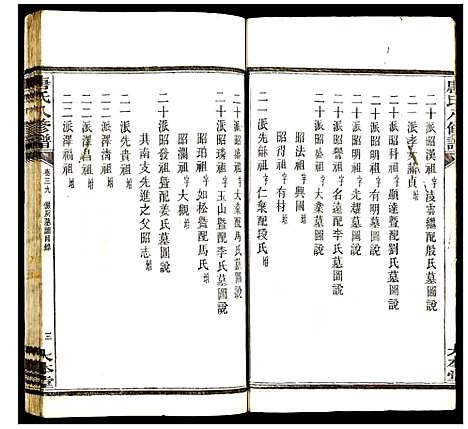 唐氏八修譜
二十派昭漢祖字凌雲繼配殷氏墓圖說
二一派孝女蕭貞墳
二十派昭科祖字顯達暨配劉氏墓圖說
二十派昭明祖字有明墓圖說
二十派昭明祖字光耀墓圖說
二十派昭譽祖字名遠配李氏墓圖說
二十派昭益祖字大業墓圖說
昭法祖字興國墳
昭得祖字有材墳
二一派先龢祖字仁榘配段氏墳
大本堂
二十派昭瑞祖字大配馬氏墳
昭璘祖字玉山暨配李氏墓圖說
昭珀祖字如松暨配馬氏墳
昭瀾祖字大觀墳
二十派昭發祖暨配姜氏墓圖說
其南支先進之父昭志墳
二一派先貴祖墳
二二派澤清祖墳
二二派澤昌祖墳
二二派澤福祖墳
唐氏八修譜
卷三九
墓圖目錄
三
大本堂